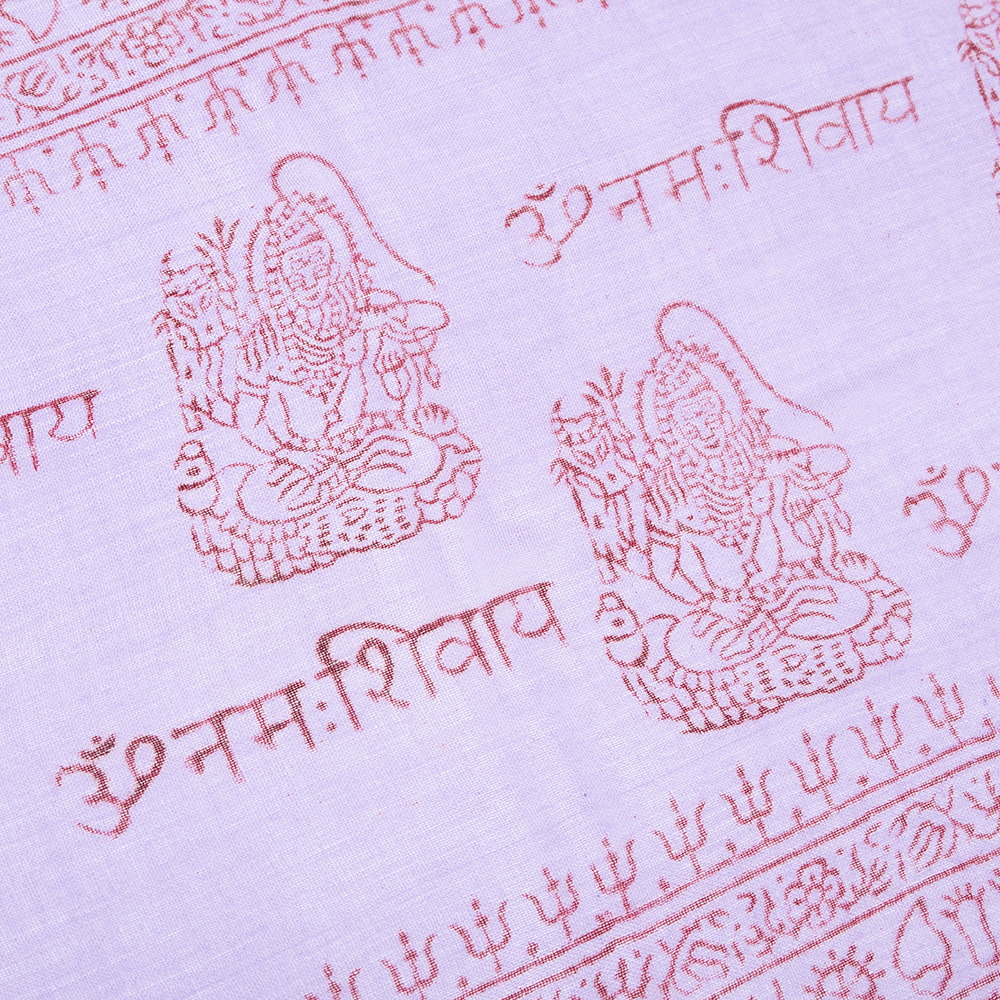 ॐ नमःशिवाय
वाय
ॐ
ॐ नमःशिवाय